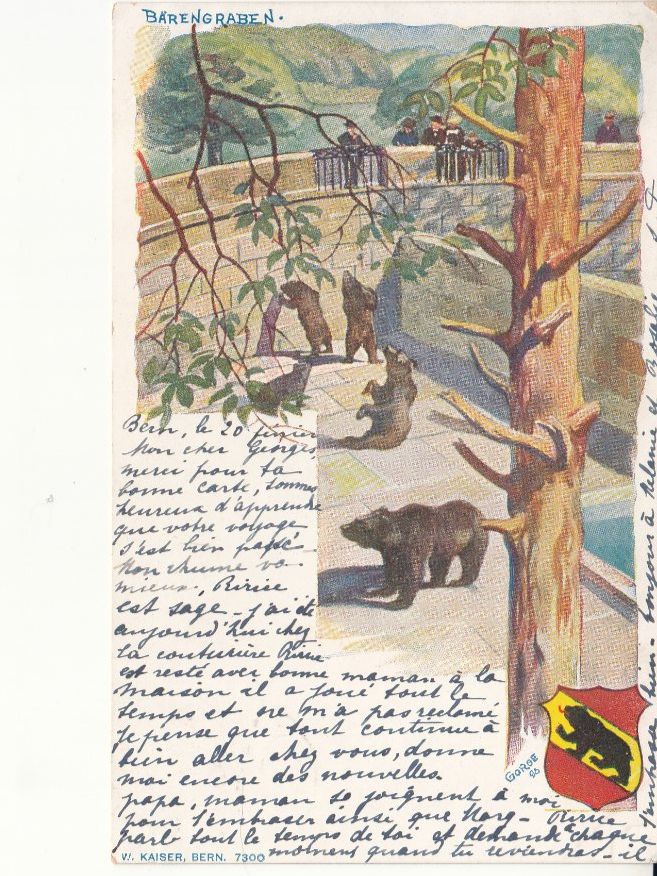 BÄRENGRABEN.
Bern, le 20 février
Mon cher Georges,
merci pour ta
bonne carte, sommes
heureux d'apprendre
que votre voyage
s'est bien passé
Mon rhume va
mieux, Ririe
est sage - j'ai été
aujourd'hui chez
la couturière Ririe
est resté avec bonne maman à la
maison il a joué tout le
temps et ne m'a pas reclamé
Je pense que tout continue à
bien aller chez vous, donne
moi encore des nouvelles.
papa, maman se joignent à moi
pour t'embrasser ainsi que Marg - Ririe
parle tout le temps de toi et demande à chaque
moment quand tu reviendras - il
t'embrasse bien - bonjour à Helenie et Rosalie
GORGE
W. KAISER, BERN. 7300